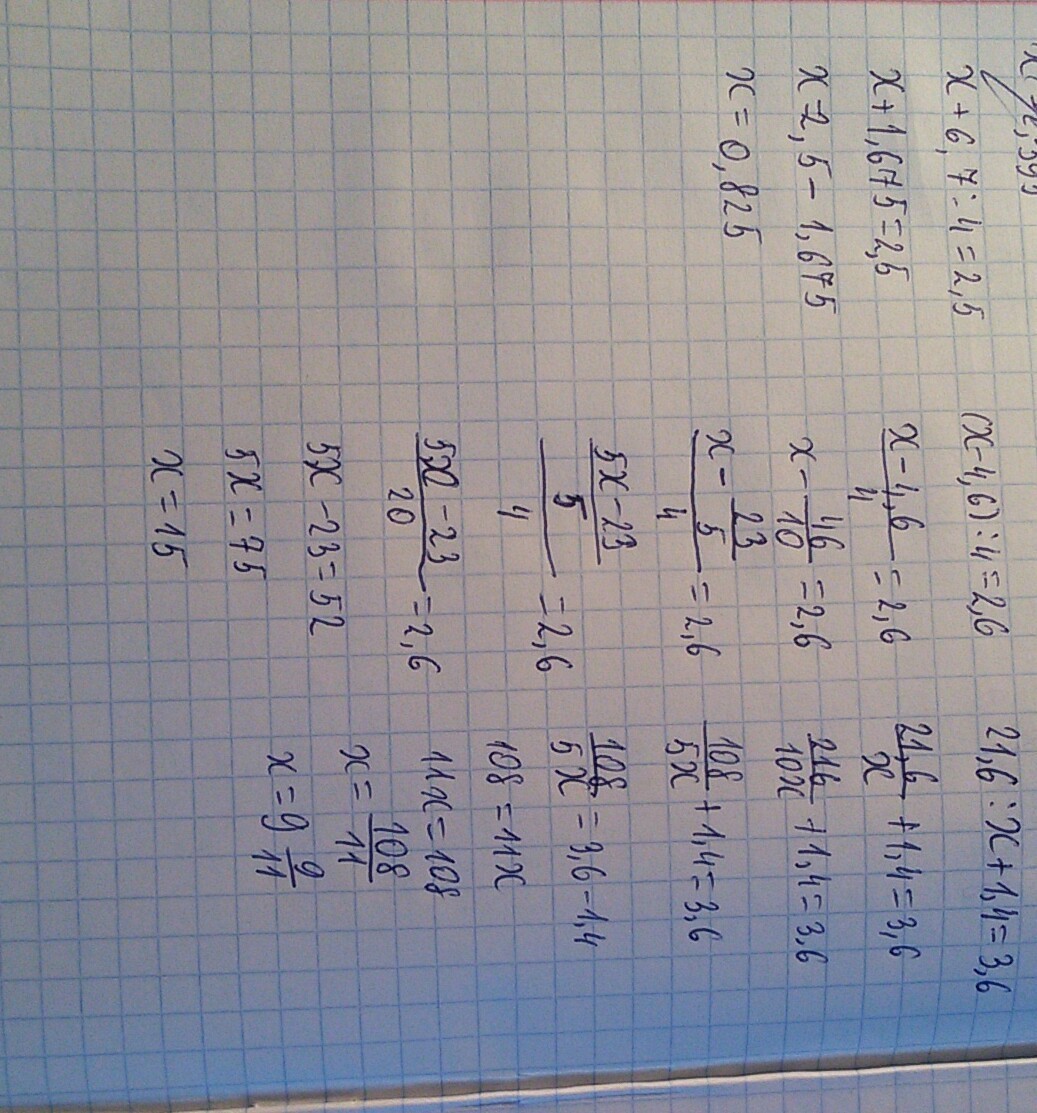 x + 6,7 : 4 = 2,5
x + 1,675 = 2,5
x = 2,5 - 1,675
x = 0,825
(x - 4,6) : 4 = 2,6
x - 4,6 / 4 = 2,6
x - 46/10 = 2,6
x - 23/5 / 4 = 2,6
5x - 23 / 5 / 4 = 2,6
5x - 23 / 20 = 2,6
5x - 23 = 52
5x = 75
x = 15
21,6 : x + 1,4 = 3,6
21,6/x + 1,4 = 3,6
216/10x + 1,4 = 3,6
108/5x + 1,4 = 3,6
108/5x = 3,6 - 1,4
108 = 11x
11x = 108
x = 108/11
x = 9 9/11